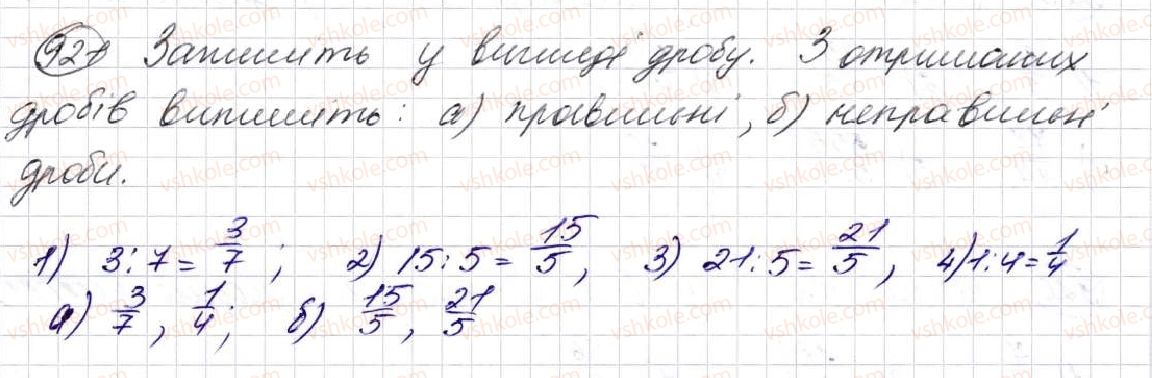 921 Запишіть у вигляді дробу. З отриманих
дробів випишіть: а) правильні, б) неправильні
дроби.
1) 3:7 = 3/7; 2) 15:5 = 15/5, 3) 21:5 = 21/5, 4) 1:4 = 1/4
а) 3/7, 1/4; б) 15/5, 21/5